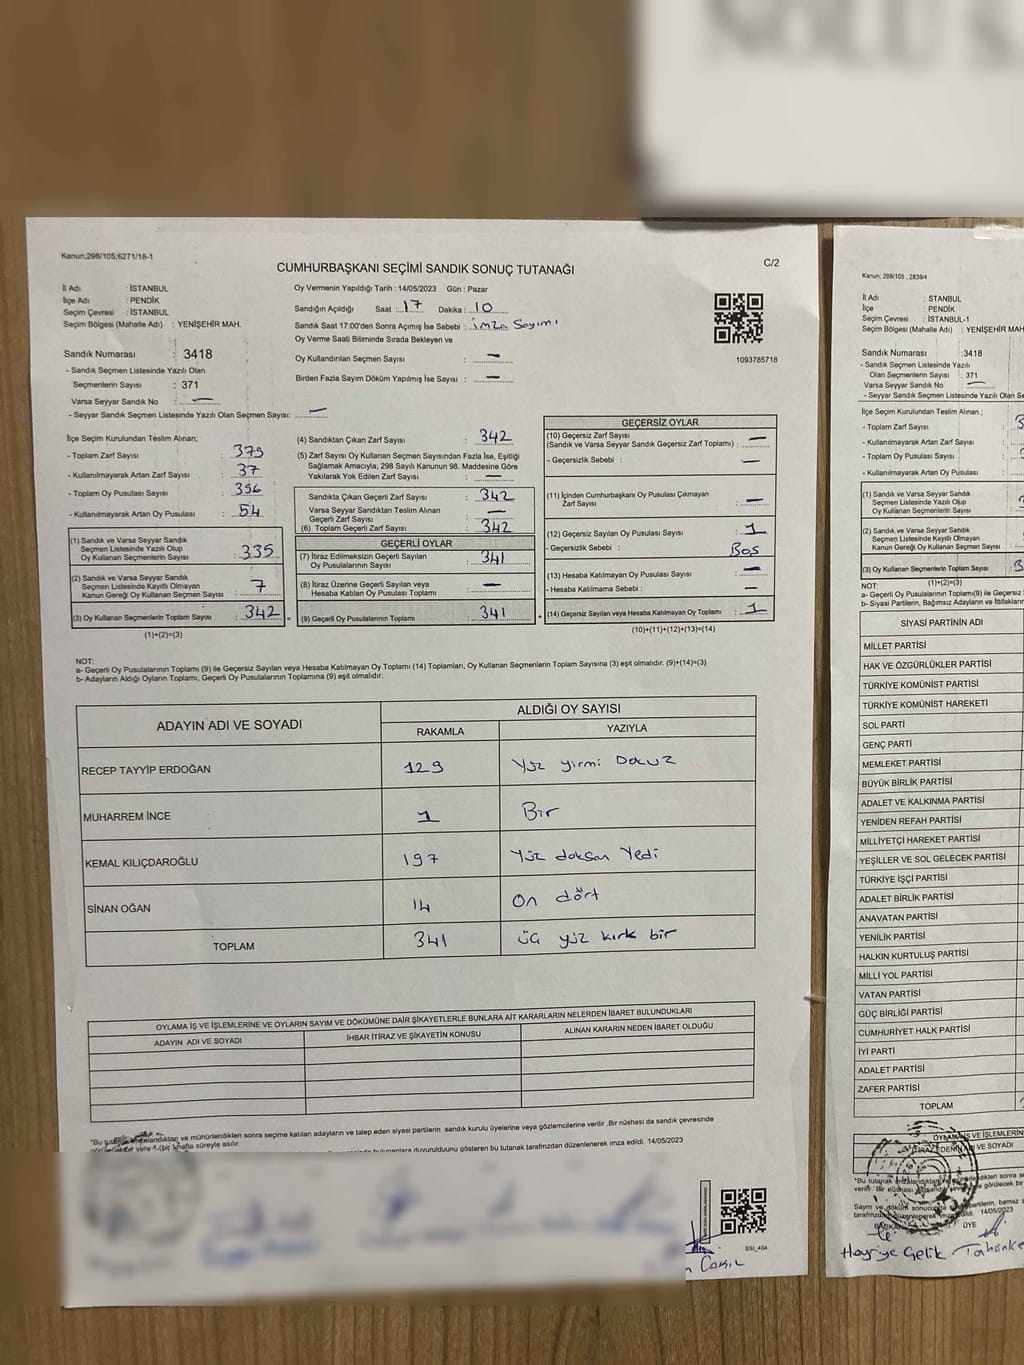 Kanun;298/105;6271/18-1
CUMHURBAŞKANI SEÇİMİ SANDIK SONUÇ TUTANAĞI
C/2
İl Adı : İSTANBUL
İlçe Adı : PENDİK
Seçim Çevresi : İSTANBUL
Seçim Bölgesi (Mahalle Adı) : YENİŞEHİR MAH.
Sandık Numarası : 3418
- Sandık Seçmen Listesinde Yazılı Olan
Seçmenlerin Sayısı : 371
Varsa Seyyar Sandık No : —
- Seyyar Sandık Seçmen Listesinde Yazılı Olan Seçmen Sayısı: —
Oy Vermenin Yapıldığı Tarih : 14/05/2023 Gün : Pazar
Sandığın Açıldığı Saat : 17 Dakika : 10
Sandık Saat 17:00'den Sonra Açımış İse Sebebi : imza Sayımı
Oy Verme Saati Bitiminde Sırada Bekleyen ve
Oy Kullandırılan Seçmen Sayısı : —
Birden Fazla Sayım Döküm Yapılmış İse Sayısı : —
1093785718
İlçe Seçim Kurulundan Teslim Alınan;
- Toplam Zarf Sayısı : 375
- Kullanılmayarak Artan Zarf Sayısı : 37
- Toplam Oy Pusulası Sayısı : 396
- Kullanılmayarak Artan Oy Pusulası : 54
(1) Sandık ve Varsa Seyyar Sandık
Seçmen Listesinde Yazılı Olup
Oy Kullanan Seçmenlerin Sayısı : 335
(2) Sandık ve Varsa Seyyar Sandık
Seçmen Listesinde Kayıtlı Olmayan
Kanun Gereği Oy Kullanan Seçmen Sayısı : 7
(3) Oy Kullanan Seçmenlerin Toplam Sayısı : 342
(1)+(2)=(3)
(4) Sandıktan Çıkan Zarf Sayısı : 342
(5) Zarf Sayısı Oy Kullanan Seçmen Sayısından Fazla İse, Eşitliği
Sağlamak Amacıyla; 298 Sayılı Kanunun 98. Maddesine Göre
Yakılarak Yok Edilen Zarf Sayısı : —
Sandıkta Çıkan Geçerli Zarf Sayısı : 342
Varsa Seyyar Sandıktan Teslim Alınan
Geçerli Zarf Sayısı : —
(6) Toplam Geçerli Zarf Sayısı : 342
GEÇERLİ OYLAR
(7) İtiraz Edilmeksizin Geçerli Sayılan
Oy Pusulalarının Sayısı : 341
(8) İtiraz Üzerine Geçerli Sayılan veya
Hesaba Katılan Oy Pusulası Toplamı : —
(9) Geçerli Oy Pusulalarının Toplamı : 341
GEÇERSİZ OYLAR
(10) Geçersiz Zarf Sayısı
(Sandık ve Varsa Seyyar Sandık Geçersiz Zarf Toplamı) : —
- Geçersizlik Sebebi : —
(11) İçinden Cumhurbaşkanı Oy Pusulası Çıkmayan
Zarf Sayısı : —
(12) Geçersiz Sayılan Oy Pusulası Sayısı : 1
- Geçersizlik Sebebi : Boş
(13) Hesaba Katılmayan Oy Pusulası Sayısı : —
- Hesaba Katılmama Sebebi : —
(14) Geçersiz Sayılan veya Hesaba Katılmayan Oy Toplamı : 1
(10)+(11)+(12)+(13)=(14)
NOT:
a- Geçerli Oy Pusulalarının Toplamı (9) ile Geçersiz Sayılan veya Hesaba Katılmayan Oy Toplamı (14) Toplamları, Oy Kullanan Seçmenlerin Toplam Sayısına (3) eşit olmalıdır. (9)+(14)=(3)
b- Adayların Aldığı Oyların Toplamı, Geçerli Oy Pusulalarının Toplamına (9) eşit olmalıdır.
ADAYIN ADI VE SOYADI
ALDIĞI OY SAYISI
RAKAMLA YAZIYLA
RECEP TAYYİP ERDOĞAN 129 Yüz yirmi Dokuz
MUHARREM İNCE 1 Bir
KEMAL KILIÇDAROĞLU 197 Yüz doksan Yedi
SİNAN OĞAN 14 On dört
TOPLAM 341 üç yüz kırk bir
OYLAMA İŞ VE İŞLEMLERİNE VE OYLARIN SAYIM VE DÖKÜMÜNE DAİR ŞİKAYETLERLE BUNLARA AİT KARARLARIN NELERDEN İBARET BULUNDUKLARI
ADAYIN ADI VE SOYADI İHBAR İTİRAZ VE ŞİKAYETİN KONUSU ALINAN KARARIN NEDEN İBARET OLDUĞU
sonra seçime katılan adayların ve talep eden siyasi partilerin sandık kurulu üyelerine veya gözlemcilerine verilir .Bir nüshası da sandık çevresinde
hafta süreyle asılır.
duyurulduunu gösteren bu tutanak tarafmzdan düzenlenerek imza edildi. 14/05/2023
SSI_404
Kanun; 298/105 , 2839/4
İl Adı : STANBUL
İlçe : PENDİK
Seçim Çevresi : İSTANBUL-1
Seçim Bölgesi (Mahalle Adı) : YENİŞEHİR MAH
Sandık Numarası :3418
- Sandık Seçmen Listesinde Yazılı
Olan Seçmenlerin Sayısı : 371
Varsa Seyyar Sandık No —
- Seyyar Sandık Seçmen Listesinde Yazılı Olan Se
İlçe Seçim Kurulundan Teslim Alınan ;
- Toplam Zarf Sayısı
- Kullanılmayarak Artan Zarf Sayısı
- Toplam Oy Pusulası Sayısı
- Kullanılmayarak Artan Oy Pusulası
(1) Sandık ve Varsa Seyyar Sandık
Seçmen Listesinde Yazılı Olup
Oy Kullanan Seçmenlerin Sayısı
(2) Sandık ve Varsa Seyyar Sandık
Seçmen Listesinde Kayıtlı Olmayan
Kanun Gereği Oy Kullanan Seçmen Sayısı
(3) Oy Kullanan Seçmenlerin Toplam Sayısı :
(1)+(2)=(3)
NOT:
a- Geçerli Oy Pusulalarının Toplamı(9) ile Geçersiz
b- Siyasi Partilerin, Bağımsız Adayların ve İttifakların
SİYASİ PARTİNİN ADI
MİLLET PARTİSİ
HAK VE ÖZGÜRLÜKLER PARTİSİ
TÜRKİYE KOMÜNİST PARTİSİ
TÜRKİYE KOMÜNİST HAREKETİ
SOL PARTİ
GENÇ PARTİ
MEMLEKET PARTİSİ
BÜYÜK BİRLİK PARTİSİ
ADALET VE KALKINMA PARTİSİ
YENİDEN REFAH PARTİSİ
MİLLİYETÇİ HAREKET PARTİSİ
YEŞİLLER VE SOL GELECEK PARTİSİ
TÜRKİYE İŞÇİ PARTİSİ
ADALET BİRLİK PARTİSİ
ANAVATAN PARTİSİ
YENİLİK PARTİSİ
HALKIN KURTULUŞ PARTİSİ
MİLLİ YOL PARTİSİ
VATAN PARTİSİ
GÜÇ BİRLİĞİ PARTİSİ
CUMHURİYET HALK PARTİSİ
İYİ PARTİ
ADALET PARTİSİ
ZAFER PARTİSİ
TOPLAM
ÜYE
Hayriye Çelik